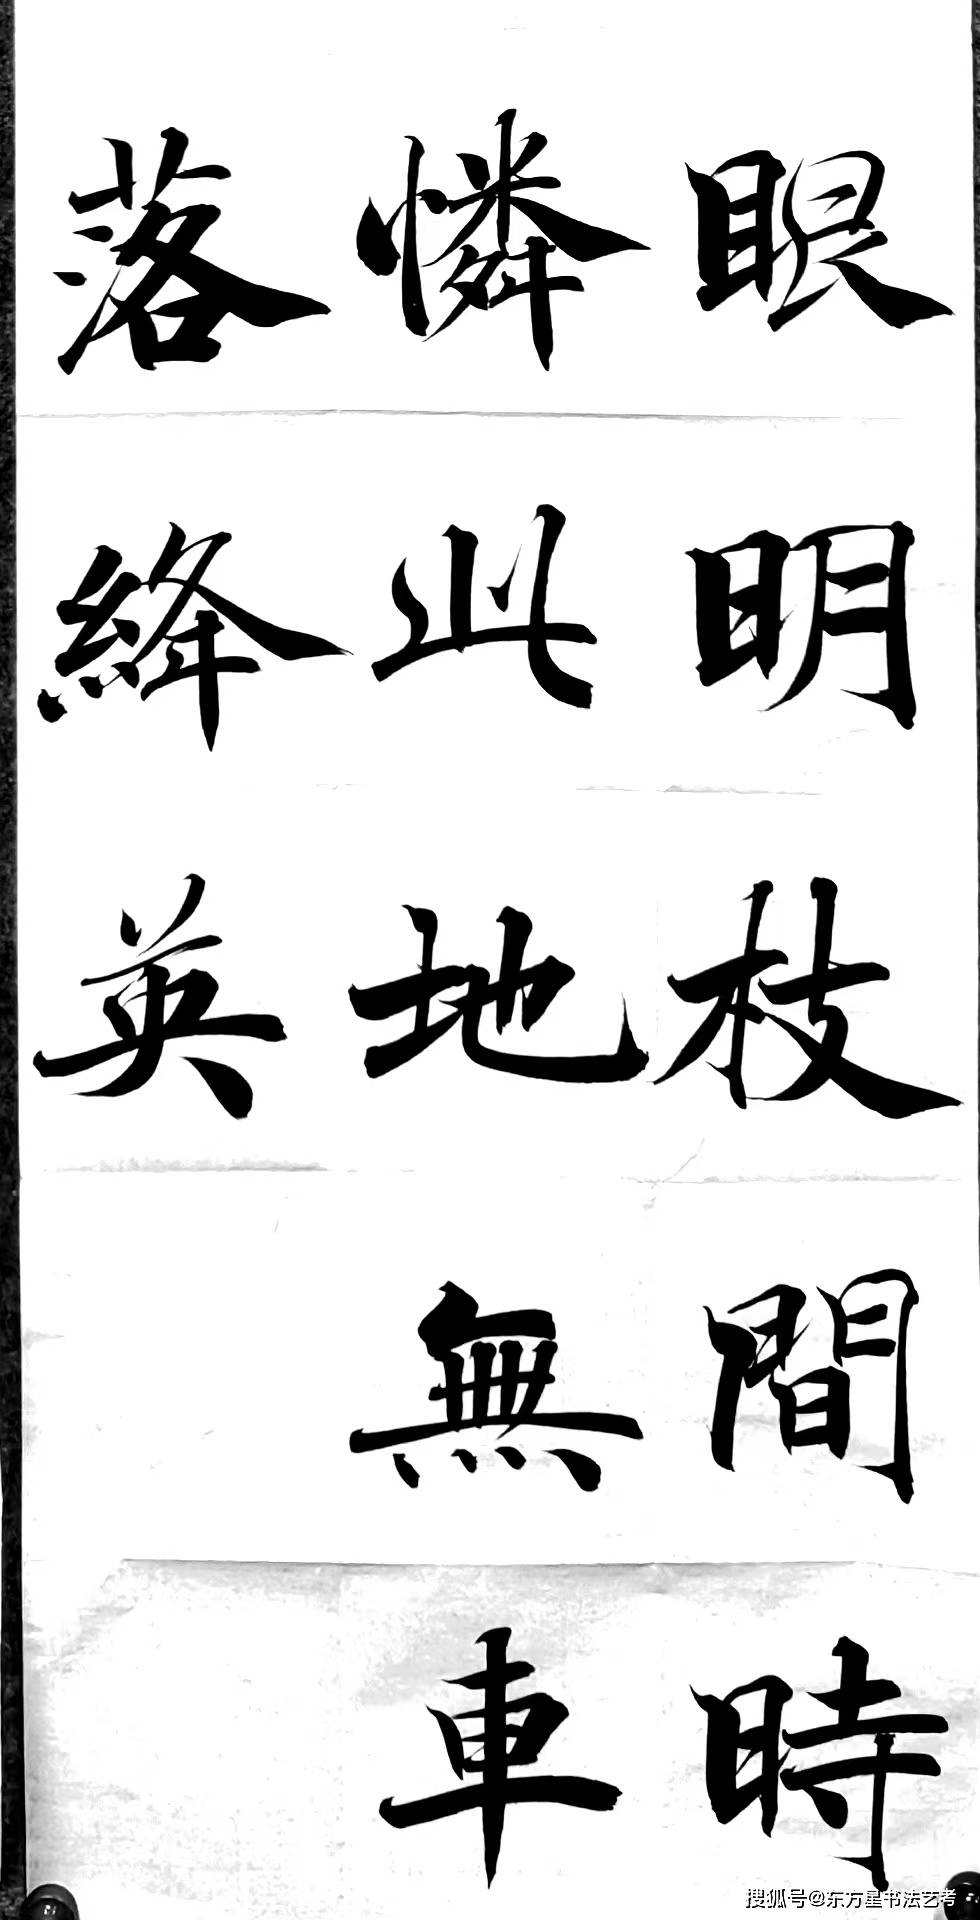 眼明枝間時
憐此地無車
落絳英
搜狐号@东方星书法艺考